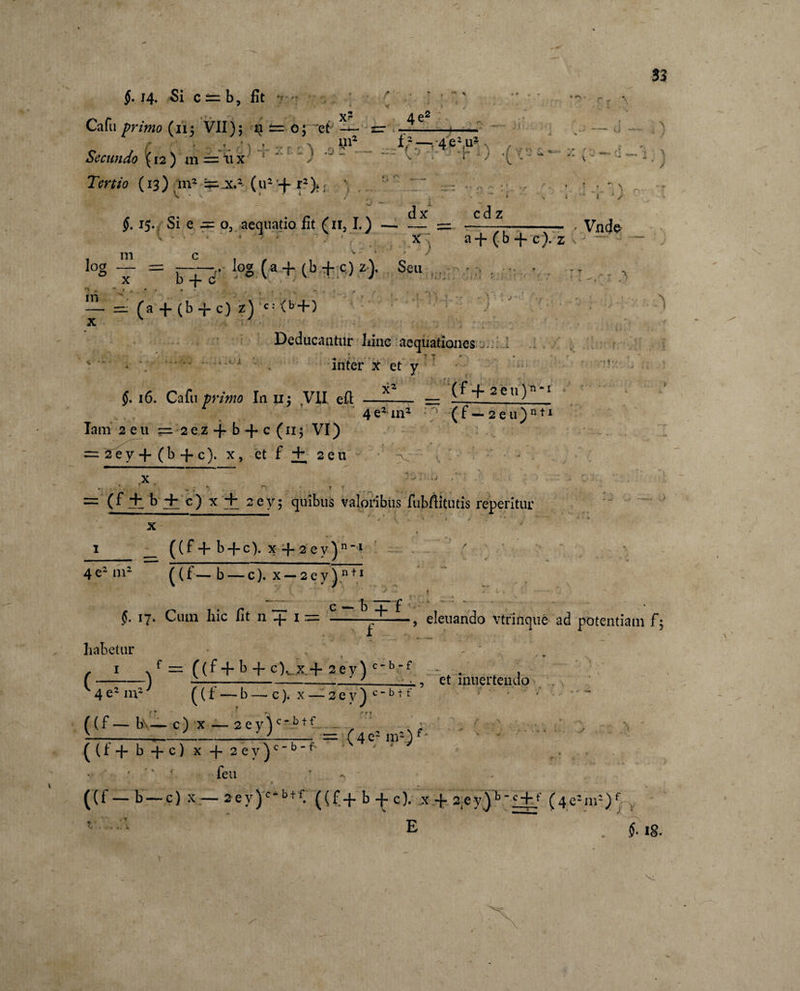 33
§. 14. Si c = b, fit
Cafu primo (11; VII); n = 0; et x²/m² = 4e²/(f² — 4e²u²)
Secundo (12) m = ux
Tertio (13) m² = x² (u² + r²).
§. 15. Si e = 0, aequatio fit (11, I.) — dx/x = cdz/(a + (b + c). z) . Vnde
log m/x = c/(b + c) . log (a + (b + c) z). Seu
m/x = (a + (b + c) z) ^c:(b+)
Deducantur hinc aequationes
inter x et y
§. 16. Cafu primo In 11; VII eft x²/(4e²m²) = (f + 2eu)ⁿ⁻¹/(f — 2eu)ⁿ⁺¹
Iam 2eu = 2ez + b + c (11; VI)
= 2ey + (b + c). x, et f ± 2eu
x
= (f ± b ± c) x ± 2ey; quibus valoribus fubftitutis reperitur
x
1/(4e²m²) = ((f + b + c). x + 2ey)ⁿ⁻¹/((f — b — c). x — 2ey)ⁿ⁺¹
§. 17. Cum hic fit n ∓ 1 = (c — b ∓ f)/f, eleuando vtrinque ad potentiam f;
habetur
(1/(4e²m²))^f = ((f + b + c). x + 2ey)^c-b-f/((f — b — c). x — 2ey)^c-b+f, et inuertendo
((f — b — c) x — 2ey)^c-b+f/((f + b + c) x + 2ey)^c-b-f = (4e²m²)^f
feu
((f — b — c) x — 2ey)^c-b+f. ((f + b + c). x + 2ey)^b-c+f (4e²m²)^f
E
§. 18.